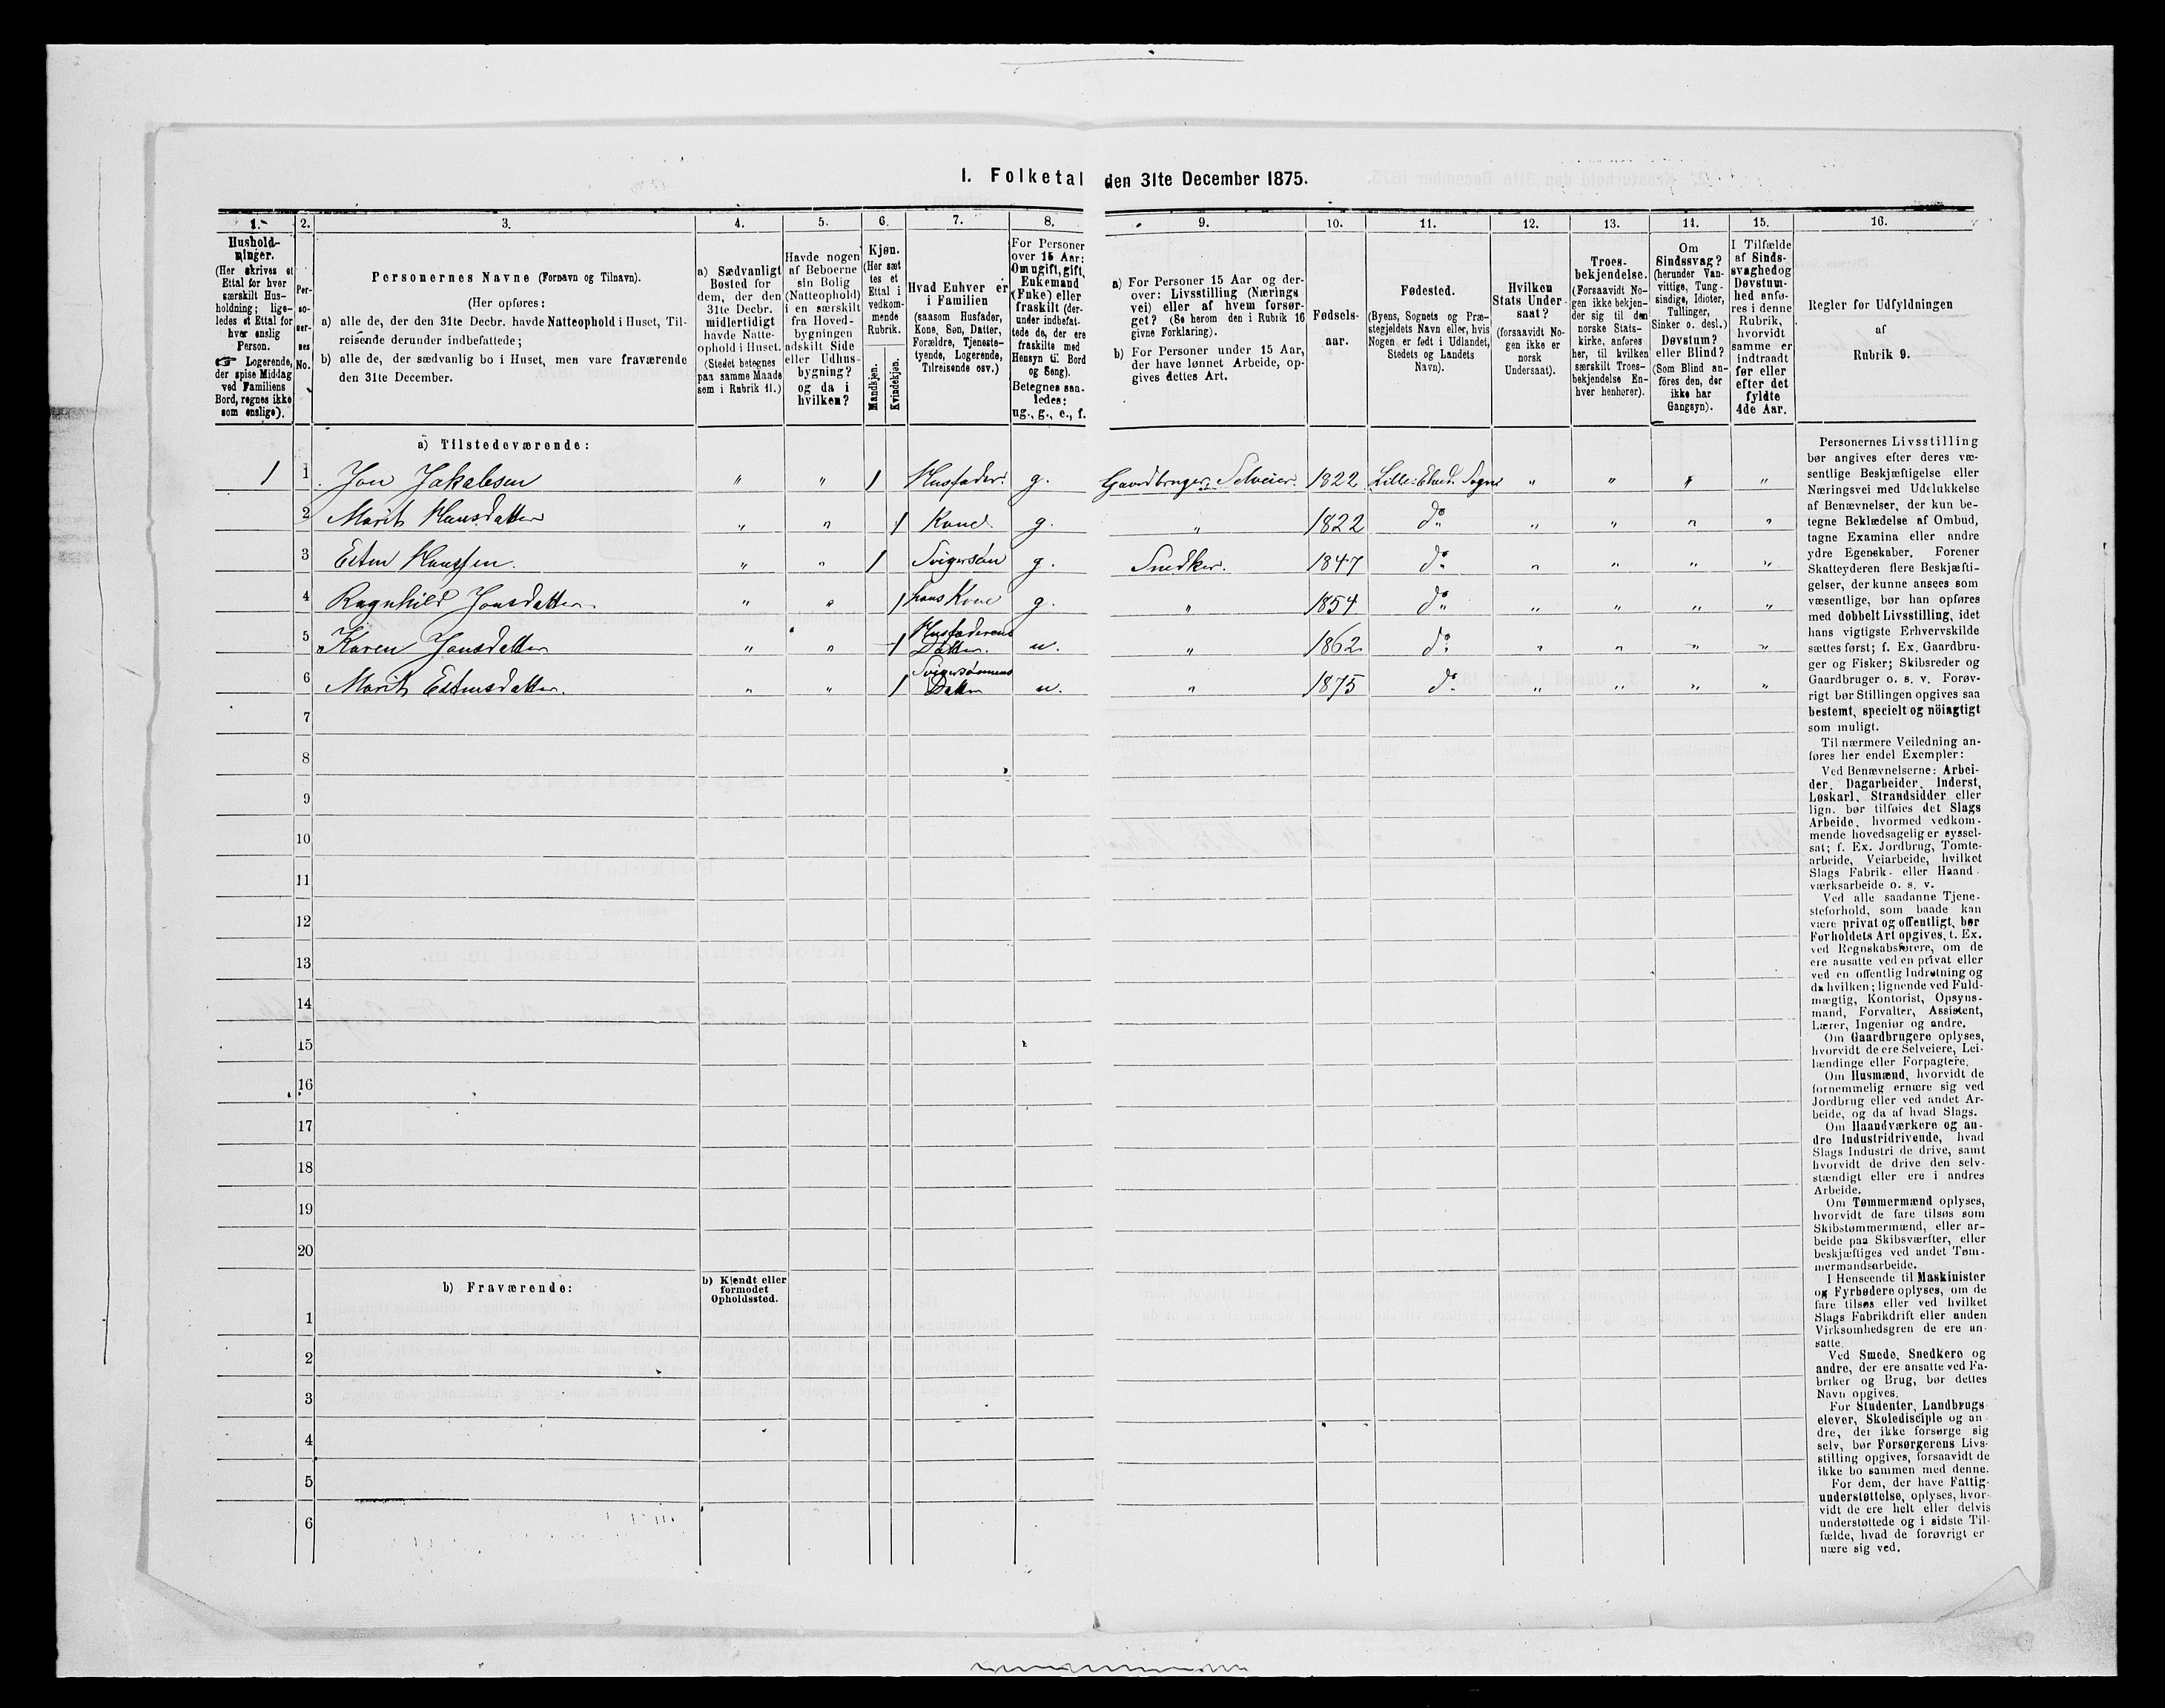 I. Folketal den 31te December 1875.
1. 2. 3. 4. 5. 6. 7. 8. 9. 10. 11. 12. 13. 14. 15. 16.
Hushold-
ninger.
(Her skrives et
Ettal for hver
særskilt Hus-
holdning; lige-
ledes et Ettal for
hver enslig
Person.
☞ Logerende,
der spise Middag
ved Familiens
Bord, regnes ikke
som enslige).
Per-
so-
ner-
nes
No.
Personernes Navne (Fornavn og Tilnavn).
(Her opføres:
a) alle de, der den 31te Decbr. havde Natteophold i Huset, Til-
reisende derunder indbefattede;
b) alle de, der sædvanlig bo i Huset, men vare fraværende
den 31te December.
a) Sædvanligt
Bosted for
dem, der den
31te Decbr.
midlertidigt
havde Natte-
ophold i Huset.
(Stedet betegnes
paa samme Maade
som i Rubrik 11.)
Havde nogen
af Beboerne
sin Bolig
(Natteophold)
i en særskilt
fra Hoved-
bygningen
adskilt Side
eller Udhus-
bygning?
og da i
hvilken?
Kjøn.
(Her sæt
tes et
Ettal i
vedkom-
mende
Rubrik.
Mandkjøn.
Kvindekjøn.
Hvad Enhver er
i Familien
(saasom Husfader,
Kone, Søn, Datter,
Forældre, Tjeneste-
tyende, Logerende,
Tilreisende osv.)
For Personer
over 15 Aar:
Om ugift, gift,
Enkemand
(Enke) eller
fraskilt (der-
under indbefat-
tede de, der ere
fraskilte med
Hensyn til Bord
og Seng).
Betegnes saa-
ledes:
ug., g., e., f.
a) For Personer 15 Aar og der-
over: Livsstilling (Nærings
vei) eller af hvem forsør-
get? (Se herom den i Rubrik 16
givne Forklaring).
b) For Personer under 15 Aar,
der have lønnet Arbeide, op-
gives dettes Art.
Fødsels-
aar.
Fødested.
(Byens, Sognets og Præ-
stegjeldets Navn eller, hvis
Nogen er født i Udlandet,
Stedets og Landets
Navn).
Hvilken
Stats Under-
saat?
(forsaavidt No-
gen ikke er
norsk
Undersaat).
Troes-
bekjendelse.
(Forsaavidt No-
gen ikke bekjen-
der sig til den
norske Stats-
kirke, anføres
her, til hvilken
særskilt Troes-
bekjendelse En-
hver henhører).
Om
Sindssvag?
(herunder Van-
vittige, Tung-
sindige, Idioter,
Tullinger,
Sinker o. desl.)
Døvstum?
eller Blind?
(Som Blind an-
føres den, der
ikke har
Gangsyn).
I Tilfælde
af Sinds-
svaghed og
Døvstum-
hed anfø-
res i denne
Rubrik,
hvorvidt
samme er
indtraadt
før eller
efter det
fyldte
4de Aar.
Regler for Udfyldningen
af
Rubrik 9.
a) Tilstedeværende:
1 1 Jon Jakobsen " " 1 Husfader. g. Gaardbruger, Selveier. 1822 Lille-Elved. Sogn " " " "
2 Marit Hansdatter " " 1 Kone g. " 1822 do " " " "
3 Esten Hanssen. " " 1 Svigersøn g. Snedker. 1847 do " " " "
4 Ragnhild Jonsdatter " " 1 hans Kone g. " 1854 do " " " "
5 Karen Jonsdatter " " 1 Husfaderens Datter. u. " 1862 do " " " "
6 Marit Estensdatter. " " 1 Svigersønnens Datter u. " 1875 do " " " "
7
8
9
10
11
12
13
14
15
16
17
18
19
20
b) Fraværende:
b) Kjendt eller
formodet
Opholdssted.
1
2
3
4
5
6
Personernes Livsstilling
bør angives efter deres væ-
sentlige Beskjæftigelse eller
Næringsvei med Udelukkelse
af Benævnelser, der kun be-
tegne Beklædelse af Ombud,
tagne Examina eller andre
ydre Egenskaber. Forener
Skatteyderen flere Beskjæfti-
gelser, der kunne ansees som
væsentlige, bør han opføres
med dobbelt Livsstilling, idet
hans vigtigste Erhvervskilde
sættes først; f. Ex. Gaardbru-
ger og Fisker; Skibsreder og
Gaardbruger o. s. v. Forøv-
rigt bør Stillingen opgives saa
bestemt, specielt og nöiagtigt
som muligt.
Til nærmere Veiledning an-
føres her endel Exempler:
Ved Benævnelserne: Arbei-
der, Dagarbeider, Inderst,
Løskarl, Strandsidder eller
lign. bør tilføies det Slags
Arbeide, hvormed vedkom-
mende hovedsagelig er syssel-
sat; f. Ex. Jordbrug, Tomte-
arbeide, Veiarbeide, hvilket
Slags Fabrik- eller Haand-
værksarbeide o. s. v.
Ved alle saadanne Tjene-
steforhold, som baade kan
være privat og offentligt, bør
Forholdets Art opgives, f. Ex.
ved Regnskabsførere, om de
ere ansatte ved en privat eller
ved en offentlig Indretning og
da hvilken; lignende ved Fuld-
mægtig, Kontorist, Opsyns-
mand, Forvalter, Assistent,
Lærer, Ingeniør og andre.
Om Gaardbrugere oplyses,
hvorvidt de ere Selveiere, Lei-
lændinge eller Forpagtere.
Om Husmænd, hvorvidt de
fornemmelig ernære sig ved
Jordbrug eller ved andet Ar-
beide, og da af hvad Slags.
Om Haandværkere og an-
dre Industridrivende, hvad
Slags Industri de drive, samt
hvorvidt de drive den selv-
stændigt eller ere i andres
Arbeide.
Om Tømmermænd oplyses,
hvorvidt de fare tilsøs som
Skibstømmermænd, eller ar-
beide paa Skibsværfter, eller
beskjæftiges ved andet Tøm-
mermandsarbeide.
I Henseende til Maskinister
og Fyrbødere oplyses, om de
fare tilsøs eller ved hvilket
Slags Fabrikdrift eller anden
Virksomhedsgren de ere an-
satte.
Ved Smede, Snedkere og
andre, der ere ansatte ved Fa-
briker og Brug, bør dettes
Navn opgives.
For Studenter, Landbrugs-
elever, Skoledisciple og an-
dre, der ikke forsørge sig
selv, bør Forsørgerens Livs-
stilling opgives, forsaavidt de
ikke bo sammen med denne.
For dem, der have Fattig-
understøttelse, oplyses, hvor-
vidt de ere helt eller delvis
understøttede og i sidste Til-
fælde, hvad de forøvrigt er
nære sig ved.